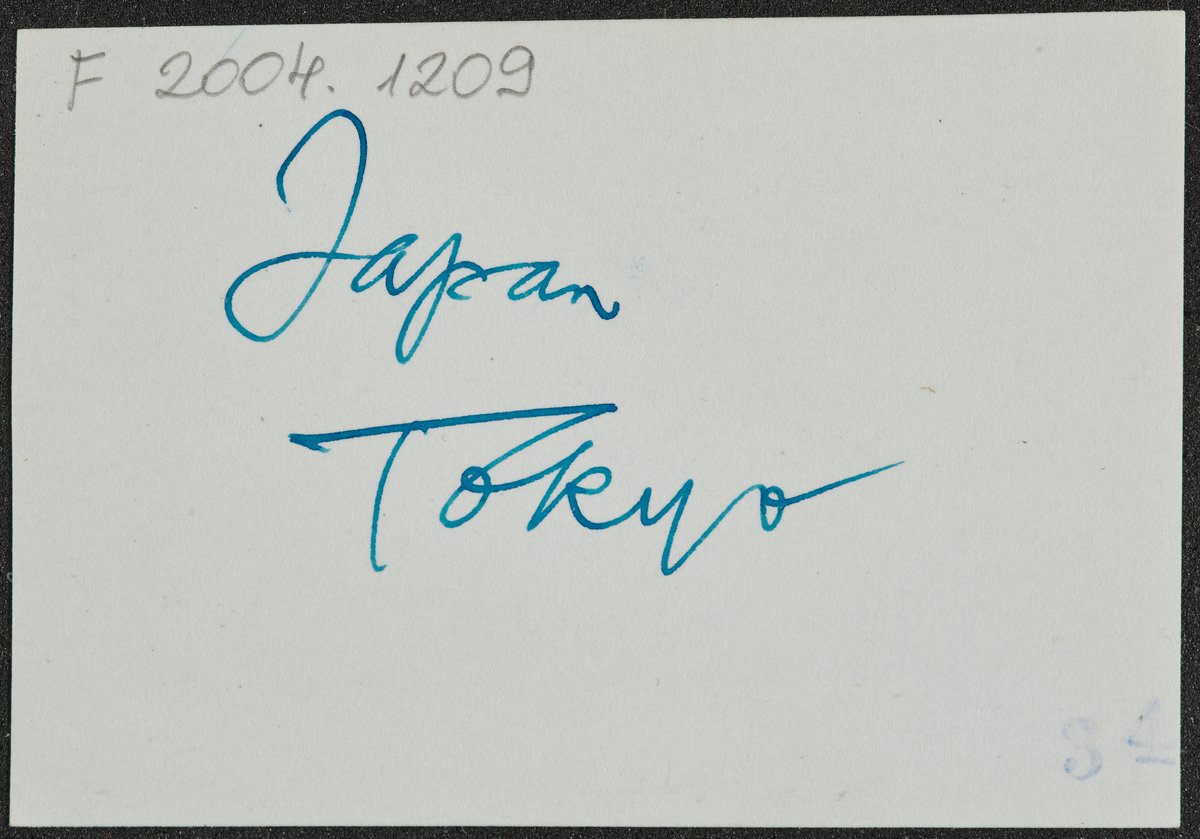 F 2004. 1209
Japan
Tokyo